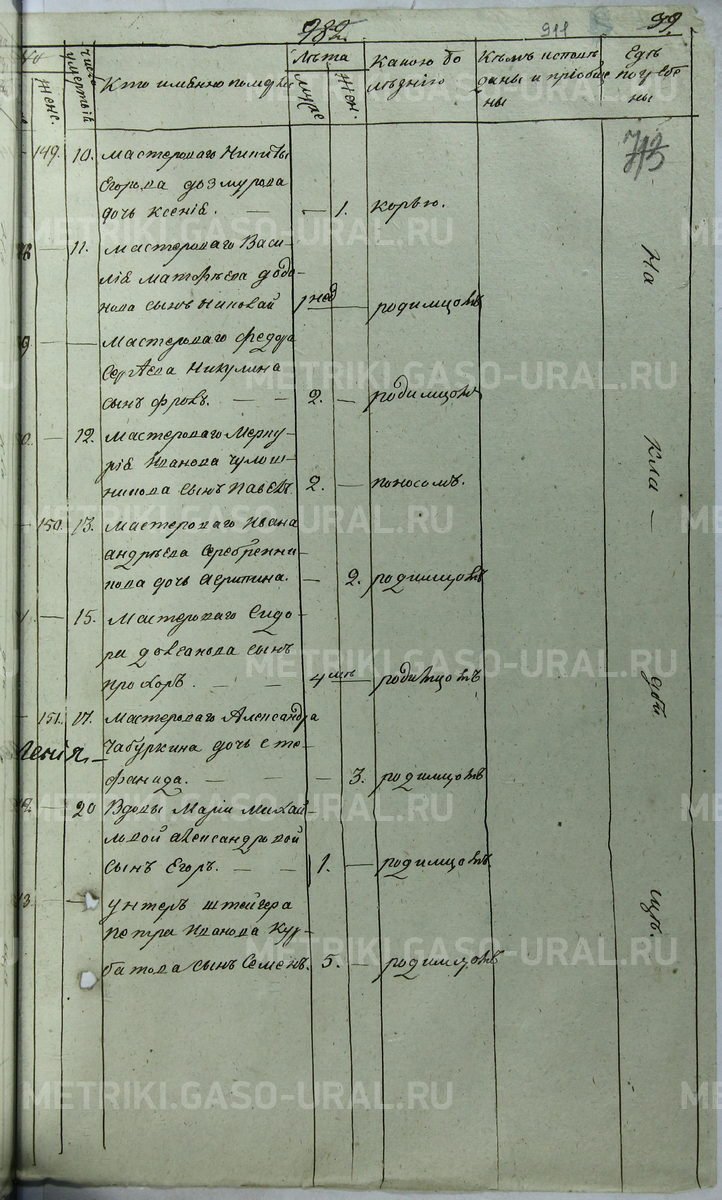 982. 911 59.
Женс.
число умертвiй
Кто имянно померъ
Лѣта
Муже
Жен.
Какою бо
лѣзнiю
Кѣмъ исповѣ
даны и прiобще
ны
Гдѣ
погребе
ны
713
149. 10. мастероваго Никиты
Егорова дозмурова
дочь Ксенiя. — — — 1. Корью.
11. мастероваго Васи
лiя Матвѣева додо
нова сынъ Николай родимцомъ
Мастероваго Федора
Сергѣева Никулина
сынъ Фролъ. — — 2. — родимцомъ
12. мастероваго Мерку
рiя Иванова Чулош
никова сынъ Павелъ. 2. — поносомъ.
150. 13. мастероваго Ивана
андрѣева Серебренни
кова дочь Агрипина. — 2. родимцомъ
15. мастероваго Сидо
ра сынъ
прохоръ. — — 4 — родимцомъ
151. 17. Мастероваго Александра
Чабуркина дочь Сте
фанида. — — — 3. родимцомъ
20 Вдовы Марiи Михай
ловой александровой
сынъ Егоръ. — — 1. — родимцомъ
— унтеръ штейгера
Петра Иванова Кур
батова сынъ Семенъ. 5. — родимцомъ
На
кла —
дби
щѣ.
METRIKI.GASO-URAL.RU